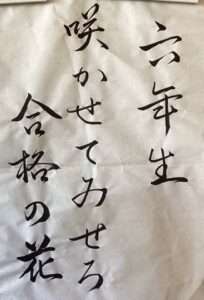 六年生
咲かせてみせろ
合格の花